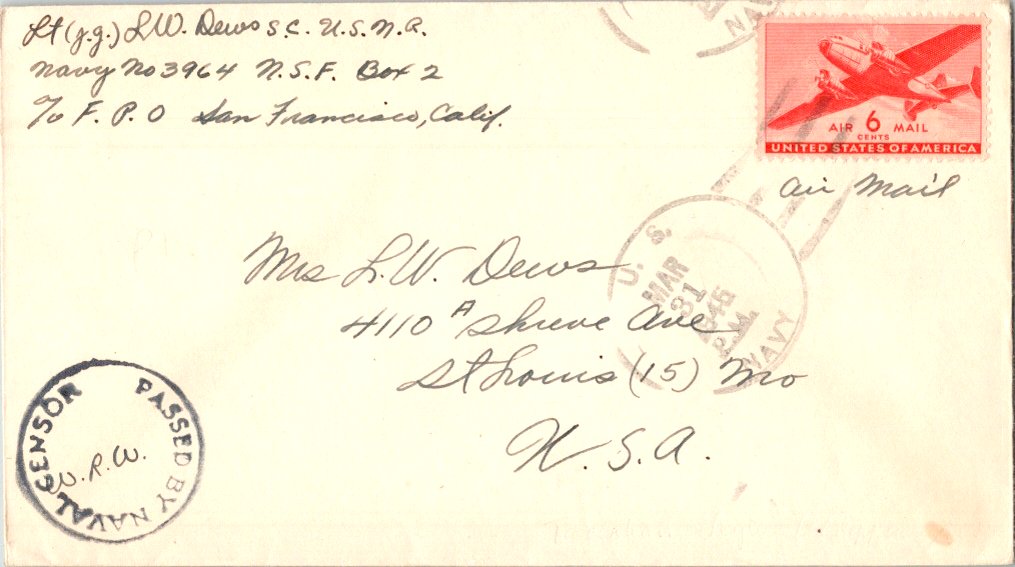 Lt (j.g.) L.W. Dews S.C. U.S.N.R.
Navy No 3964 N.S.F. Box 2
c/o F.P.O San Francisco, Calif.
NAVY
AIR 6 MAIL
CENTS
UNITED STATES OF AMERICA
Air Mail
U. S.
MAR
31
1946
P.M.
NAVY
Mrs L.W. Dews
4110 A Shreve Ave
St Louis (15) Mo
U.S.A.
PASSED BY NAVAL CENSOR
W.R.W.